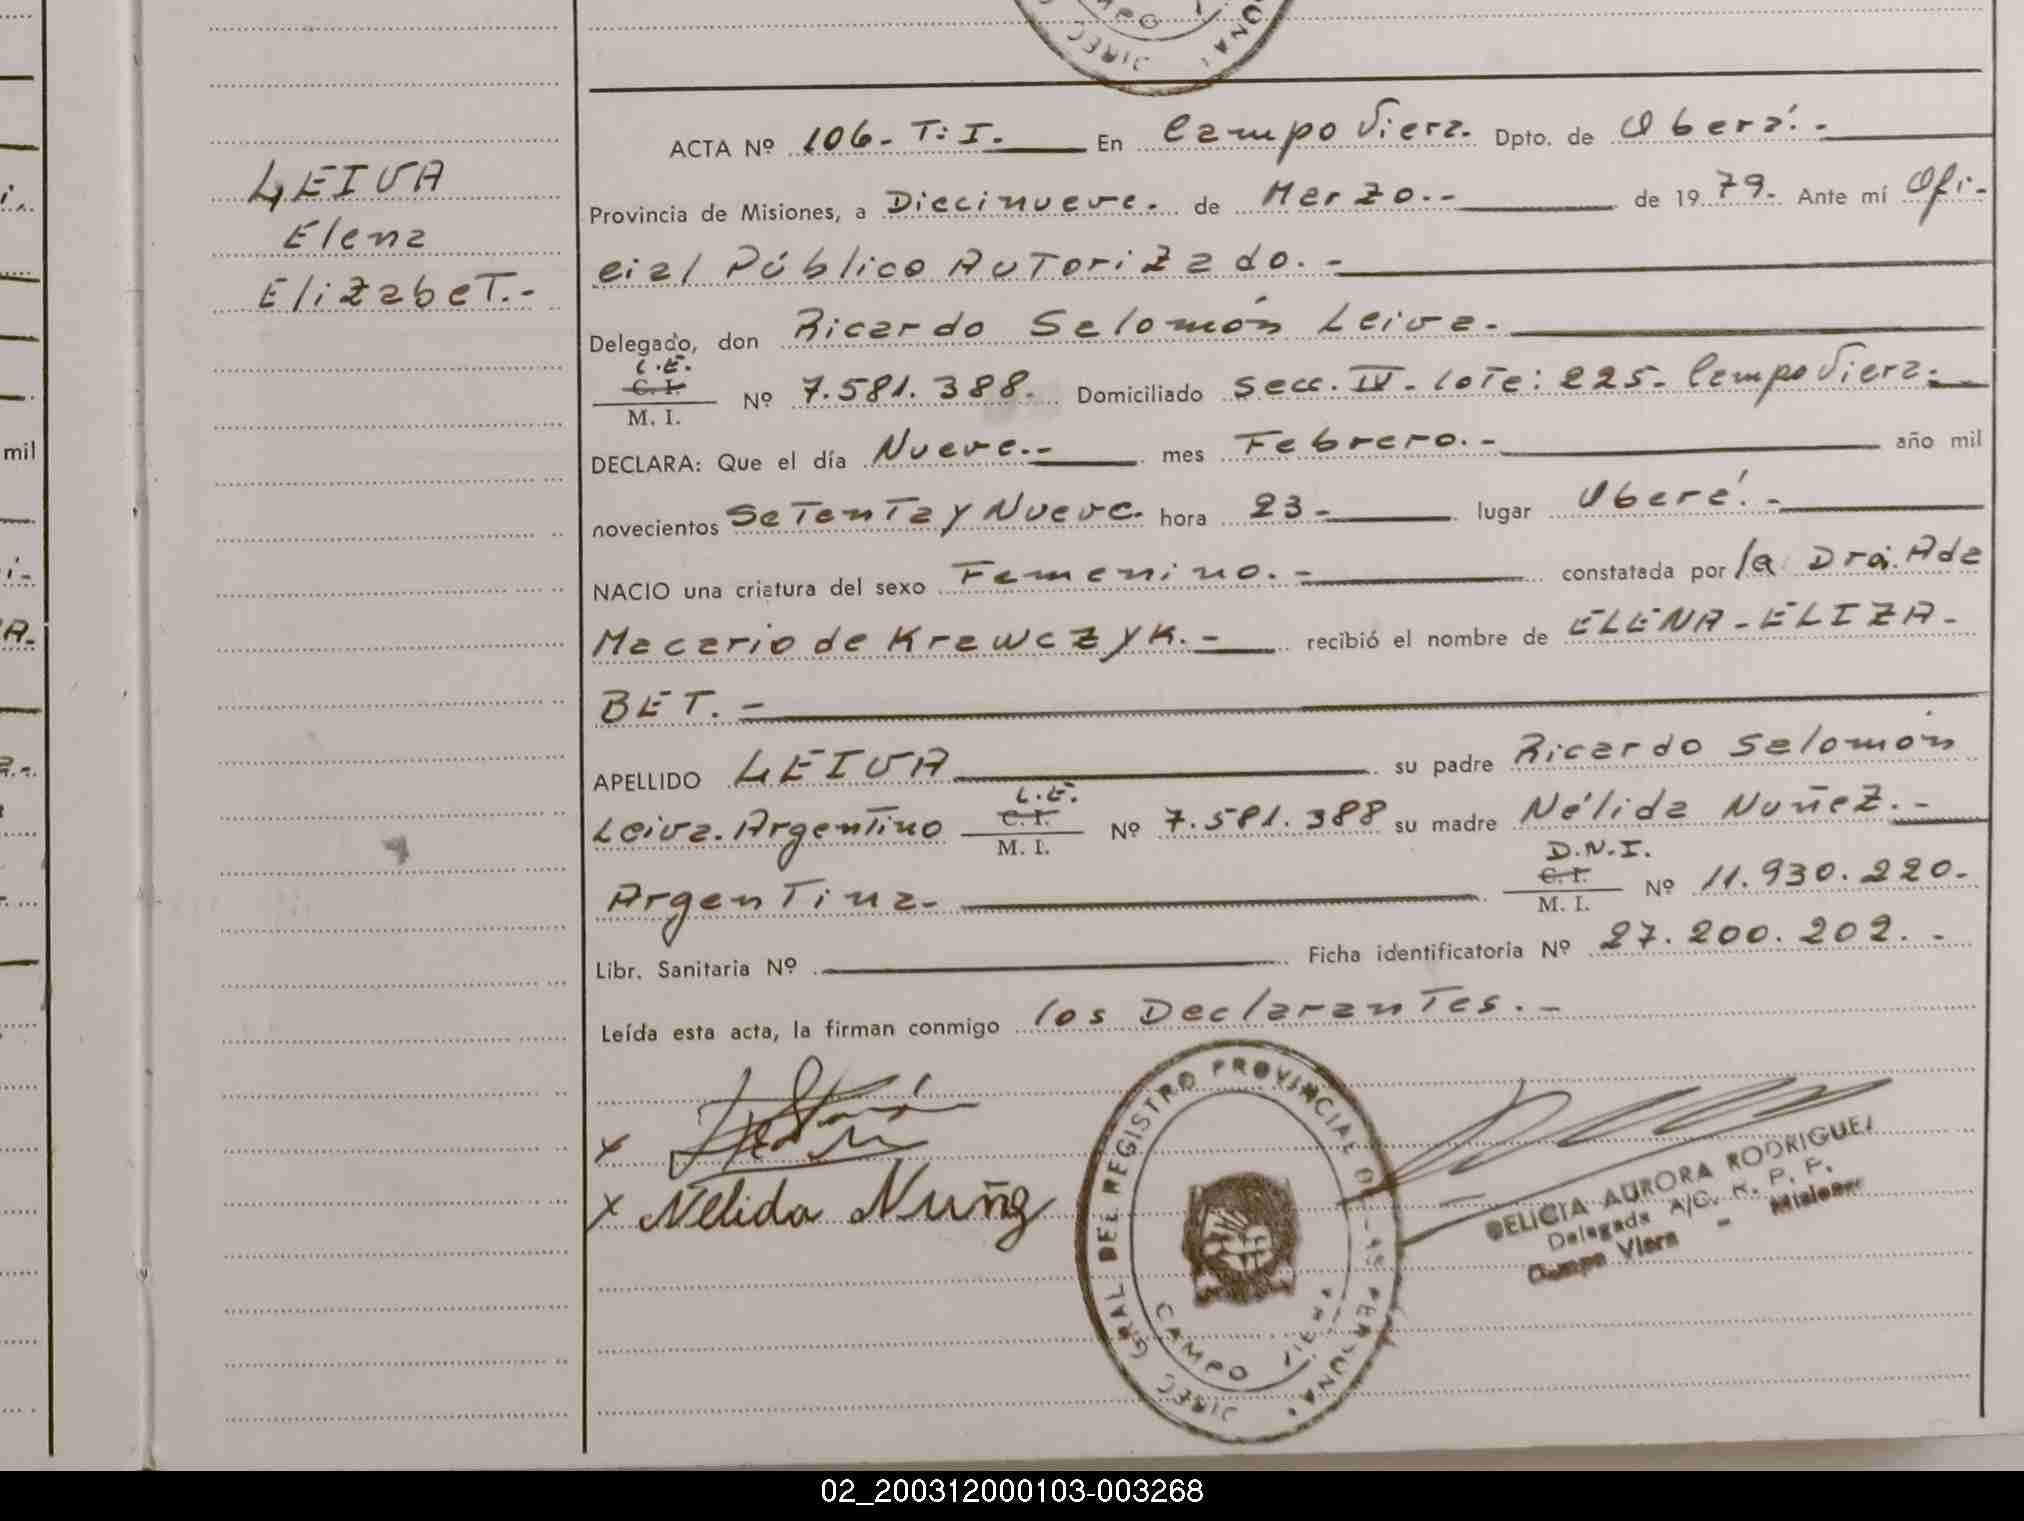 LEIVA
Elena
Elizabet.-
ACTA Nº 106- T: I. En Campo Viera. Dpto. de Oberá.-
Provincia de Misiones, a Diecinueve. de Marzo.- de 1979.- Ante mí Ofi-
cial Público Autorizado.-
Delegado, don Ricardo Salomón Leiva.-
L.E.
C. I.
M. I. Nº 7.581.388. Domiciliado Secc. IV- lote: 225- Campo Viera.-
DECLARA: Que el día Nueve.- mes Febrero.- año mil
novecientos Setenta y Nueve. hora 23- lugar Oberá.-
NACIO una criatura del sexo Femenino.- constatada por la Dra. Ada
Macario de Krawczyk.- recibió el nombre de ELENA-ELIZA-
BET.-
APELLIDO LEIVA su padre Ricardo Salomón
Leiva. Argentino L.E. C. I. M. I. Nº 7.581.388 su madre Nélida Nuñez.-
Argentina- D.N.I. C. I. M. I. Nº 11.930.220-
Libr. Sanitaria Nº Ficha identificatoria Nº 27.200.202.-
Leída esta acta, la firman conmigo los Declarantes.-
x
x Nélida Nuñez
DIREC GRAL DEL REGISTRO PROVINCIAL DE LAS PERSONAS
CAMPO VIERA
DELICIA AURORA RODRIGUEZ
Delegada A/C. R. P. P.
Campo Viera - Misiones
mil
02_200312000103-003268